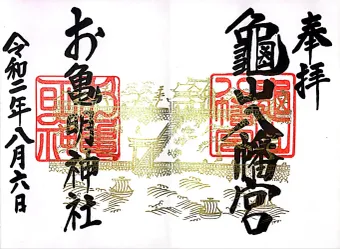 奉拝
龜山八幡宮
お亀明神社
令和二年八月六日